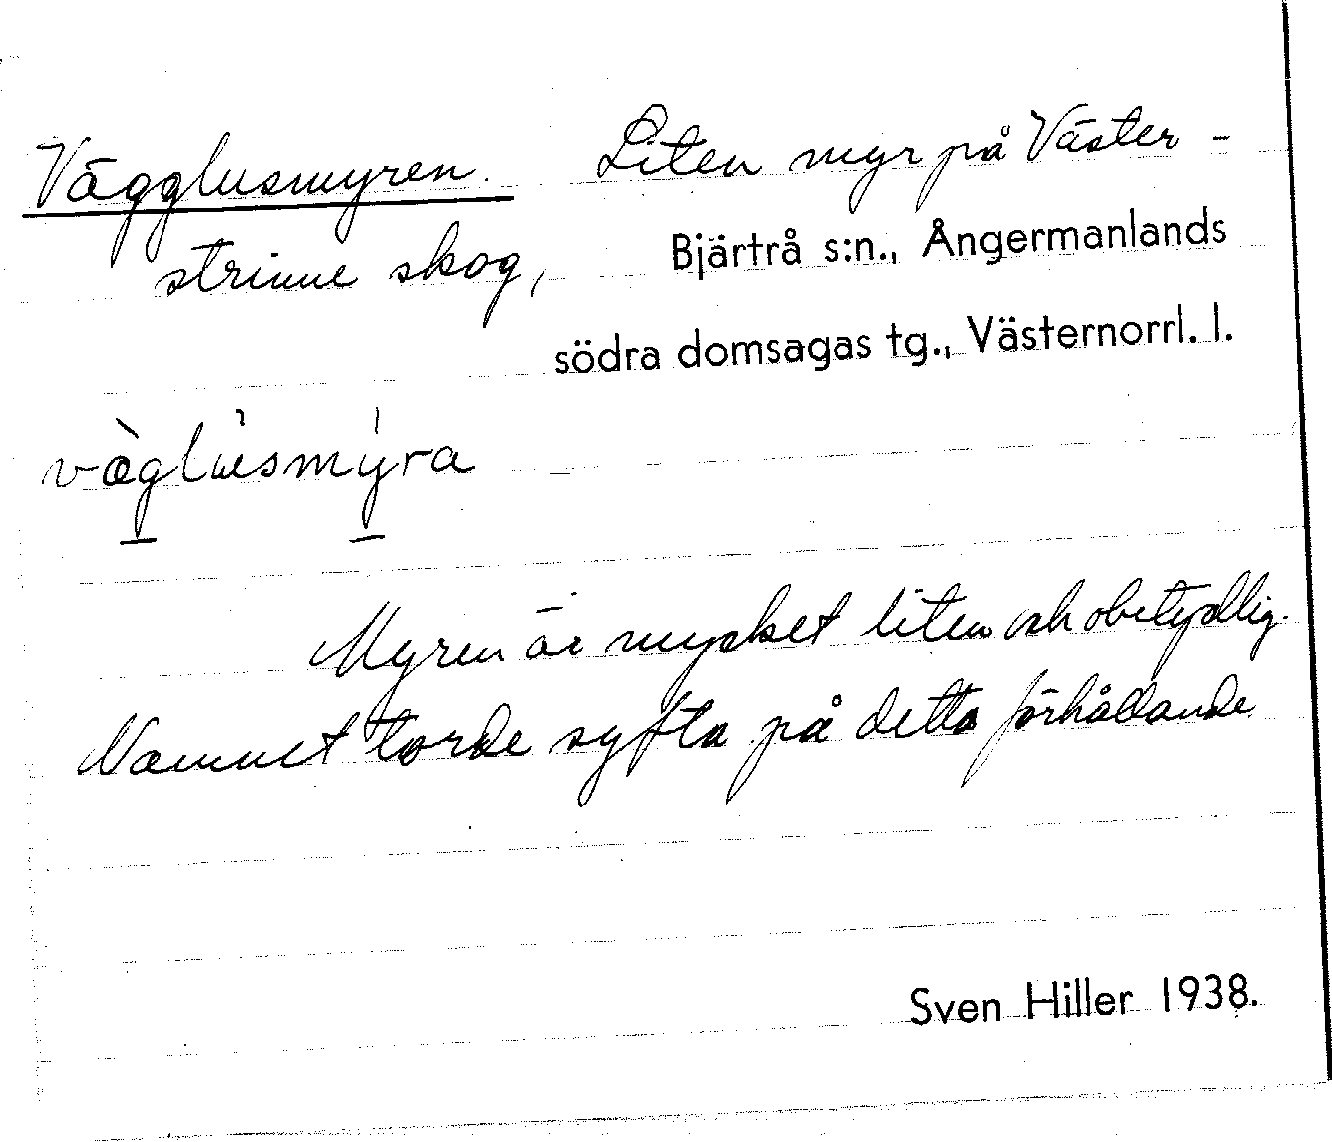 Vägglusmyren. Liten myr på Väster-
strinne skog, Bjärtrå s:n., Ångermanlands
södra domsagas tg., Västernorrl. l.
vàglusmýra
Myren är mycket liten och obetydlig.
Namnet torde syfta på detta förhållande
Sven Hiller 1938.